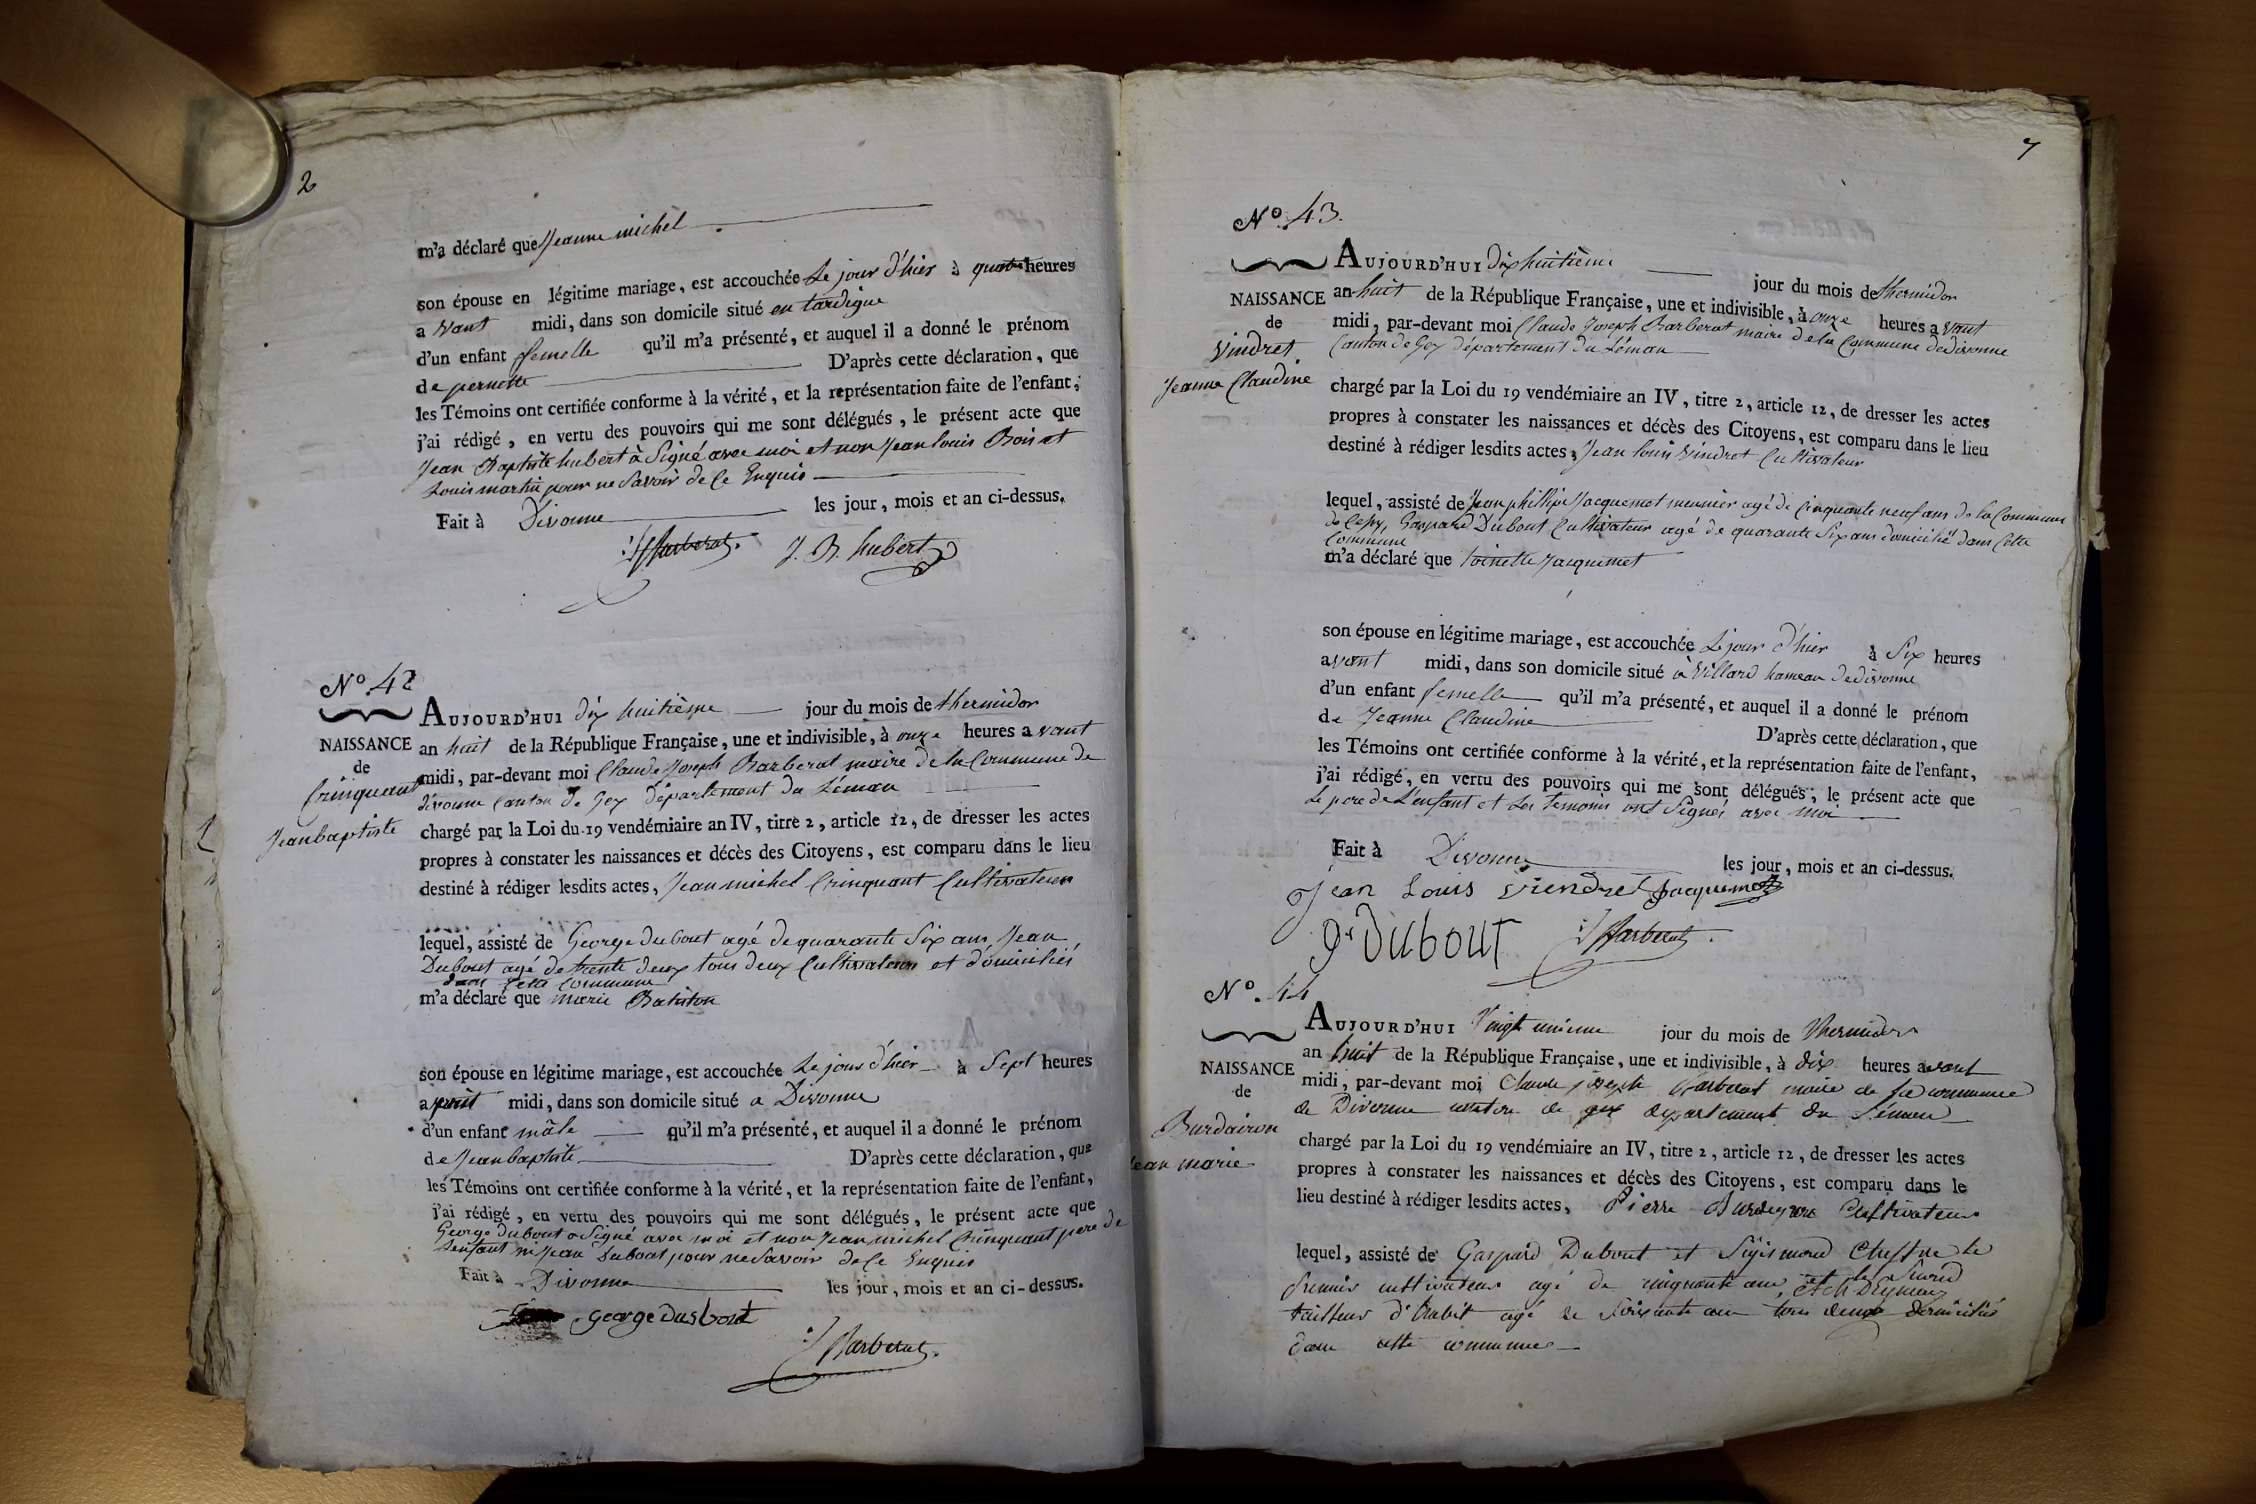 2
m'a déclaré que Jeanne michel
son épouse en légitime mariage, est accouchée Le jour d'hier à quatre heures
avant midi, dans son domicile situé en tardigue
d'un enfant femelle qu'il m'a présenté, et auquel il a donné le prénom
de pernette D'après cette déclaration, que
les Témoins ont certifiée conforme à la vérité, et la représentation faite de l'enfant,
j'ai rédigé, en vertu des pouvoirs qui me sont délégués, le présent acte que
Jean Baptiste hubert à Signé avec moi et non Jean louis Bois et
Louis martin pour ne Savoir de Ce Enquis
Fait à Divonne les jour, mois et an ci-dessus.
Barberat. J. B. hubert
No. 42
AUJOURD'HUI dix huitième jour du mois de thermidor
NAISSANCE an huit de la République Française, une et indivisible, à onze heures avant
de midi, par-devant moi Claude Joseph Barberat maire de la Commune de
Crinquant divonne Canton de Gex département du Léman
Jean baptiste chargé par la Loi du 19 vendémiaire an IV, titre 2, article 12, de dresser les actes
propres à constater les naissances et décès des Citoyens, est comparu dans le lieu
destiné à rédiger lesdits actes, Jean michel Crinquant Cultivateur
lequel, assisté de George dubout agé de quarante Six ans, Jean
Dubout agé de trente deux tous deux Cultivateurs et domiciliés
dans Cette Commune
m'a déclaré que marie
son épouse en légitime mariage, est accouchée Le jour d'hier à Sept heures
a midi, dans son domicile situé a Divonne
d'un enfant mâle qu'il m'a présenté, et auquel il a donné le prénom
de Jean baptiste D'après cette déclaration, que
les Témoins ont certifiée conforme à la vérité, et la représentation faite de l'enfant,
j'ai rédigé, en vertu des pouvoirs qui me sont délégués, le présent acte que
George dubout a Signé avec moi et non Jean michel Crinquant pere de
Lenfant ni Jean Dubout pour ne Savoir de Ce Enquis
Fait à Divonne les jour, mois et an ci-dessus.
George Dusbout
Barberat.
7
No. 43.
AUJOURD'HUI dix huitième jour du mois de thermidor
NAISSANCE an huit de la République Française, une et indivisible, à onze heures avant
de midi, par-devant moi Claude Joseph Barberat maire de la Commune de divonne
Vindret Canton de Gex département du Léman
Jeanne Claudine chargé par la Loi du 19 vendémiaire an IV, titre 2, article 12, de dresser les actes
propres à constater les naissances et décès des Citoyens, est comparu dans le lieu
destiné à rédiger lesdits actes, Jean louis Vindret Cultivateur
lequel, assisté de Jean phillipe Jacquemet meunier agé de Cinquante neuf ans de la Commune
de Cessy, Gaspard Dubout Cultivateur agé de quarante Six ans domicilié dans Cette
Commune
m'a déclaré que toinette Jacquemet
son épouse en légitime mariage, est accouchée Le jour d'hier à Six heures
avant midi, dans son domicile situé à Villard hameau de divonne
d'un enfant femelle qu'il m'a présenté, et auquel il a donné le prénom
de Jeanne Claudine D'après cette déclaration, que
les Témoins ont certifiée conforme à la vérité, et la représentation faite de l'enfant,
j'ai rédigé, en vertu des pouvoirs qui me sont délégués, le présent acte que
Le pere de L'enfant et Les temoins ont Signés avec moi
Fait à Divonne les jour, mois et an ci-dessus.
jean Louis viendret Jacquemet
Gd Dubout Barberat.
No. 44
AUJOURD'HUI Vingt unieme jour du mois de thermidor
NAISSANCE an huit de la République Française, une et indivisible, à dix heures avant
de midi, par-devant moi Claude joseph Barberat maire de la commune
de Divonne canton de gex departement du Léman
Burdairon chargé par la Loi du 19 vendémiaire an IV, titre 2, article 12, de dresser les actes
jean marie propres à constater les naissances et décès des Citoyens, est comparu dans le
lieu destiné à rédiger lesdits actes, Pierre Cultivateur
lequel, assisté de Gaspard Dubout et Sigismond le
premier cultivateur agé de cinquante ans, et le Second
tailleur d'habit agé de Soixante ans tous deux domiciliés
dans cette commune